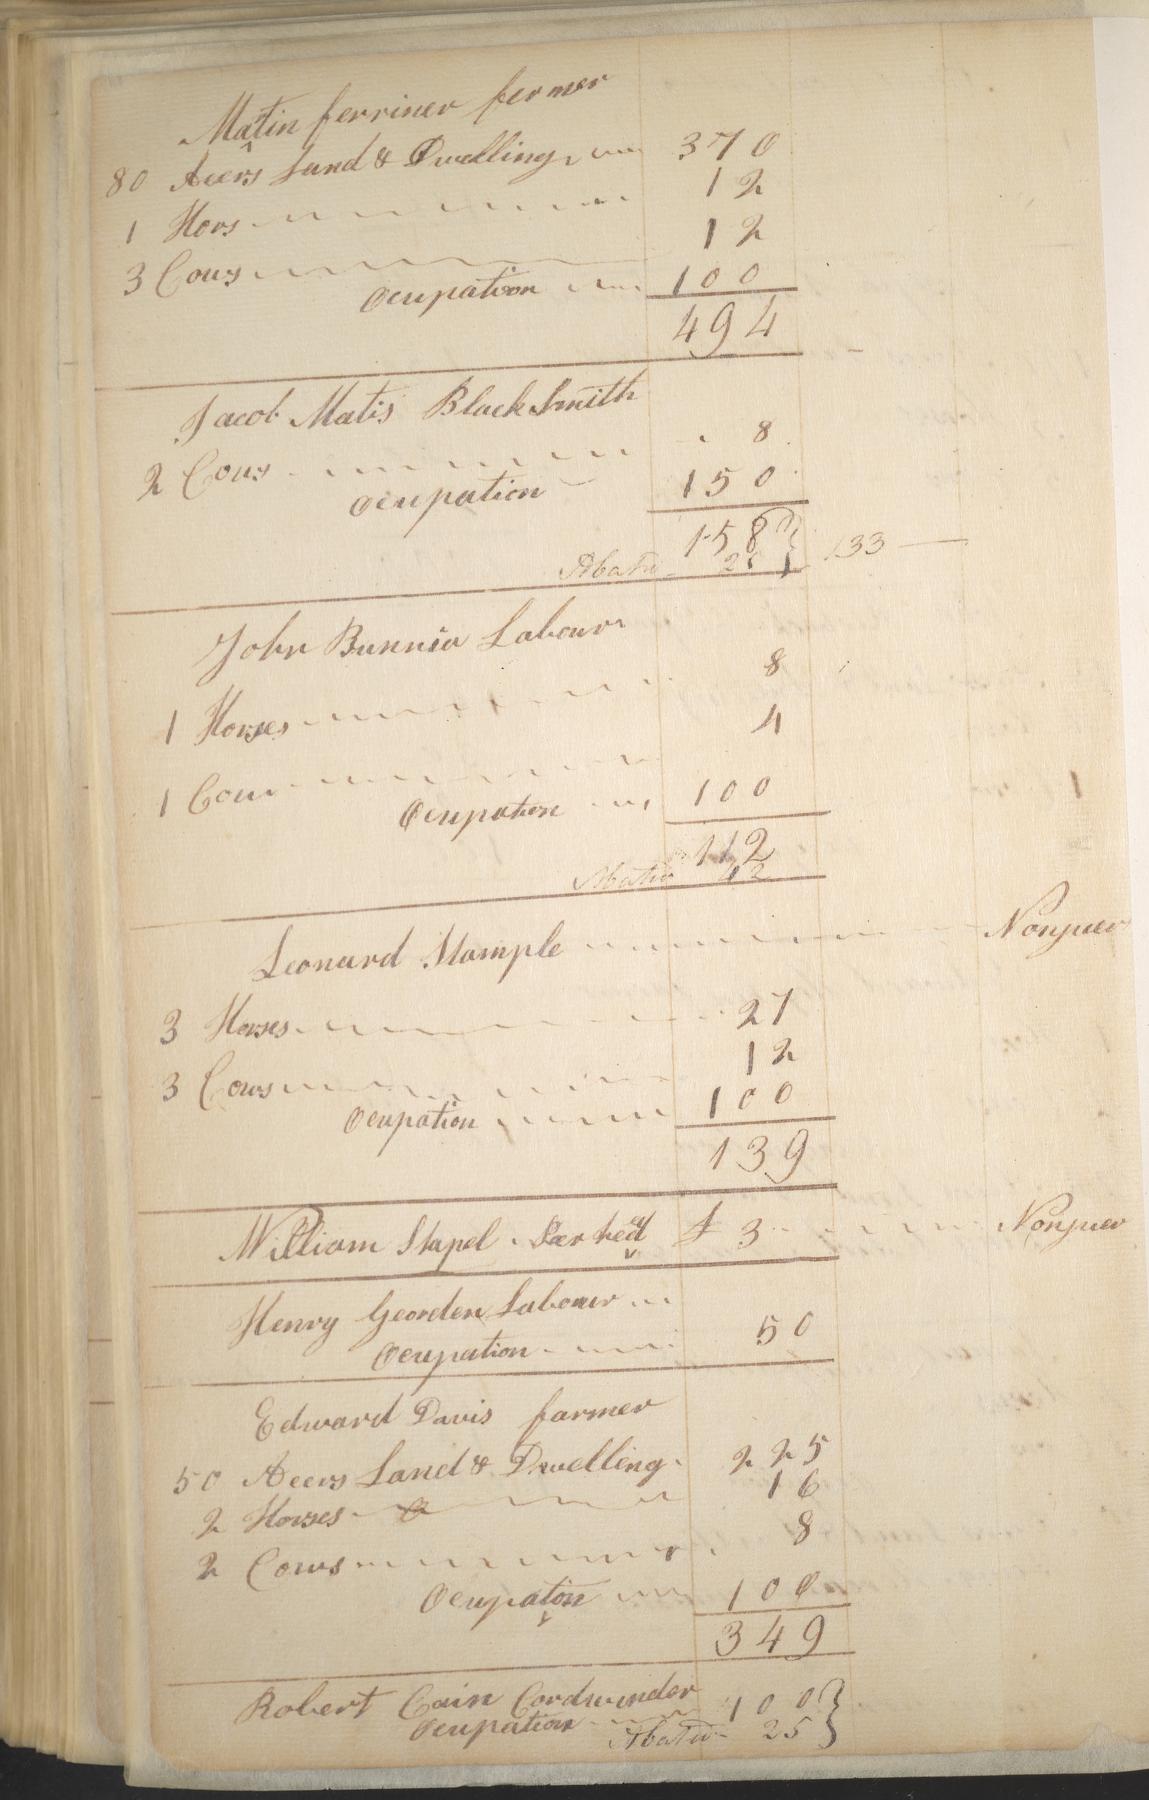 Matin ferriner fermer
80 Acers Land & Dwelling 370
1 Hors 12
3 Cows 12
Ocupation 100
494
Jacob Matis Black Smith
2 Cows 8
Ocupation 150
158
Abatd 25 133
John Bunnia Labour
1 Horses 8
1 Cow 4
Ocupation 100
112
Abatd 42
Leonard Mample
3 Horses 27
3 Cows 12
Ocupation 100
139
William Stapel $ 3
Henry Georden Labour
Ocupation 50
Edward Davis farmer
50 Acers Land & Dwelling 225
2 Horses 16
2 Cows 8
Ocupaton 100
349
Robert Cain Cordwinder
Ocupation 100
Abatd 25